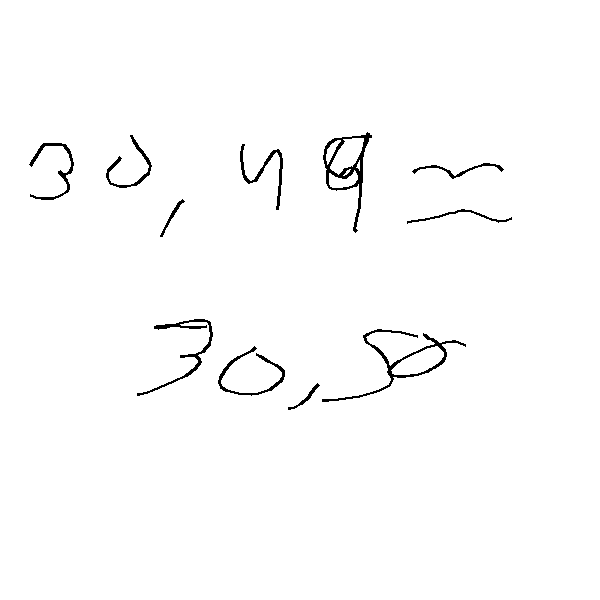 30,49 ≈
30,50